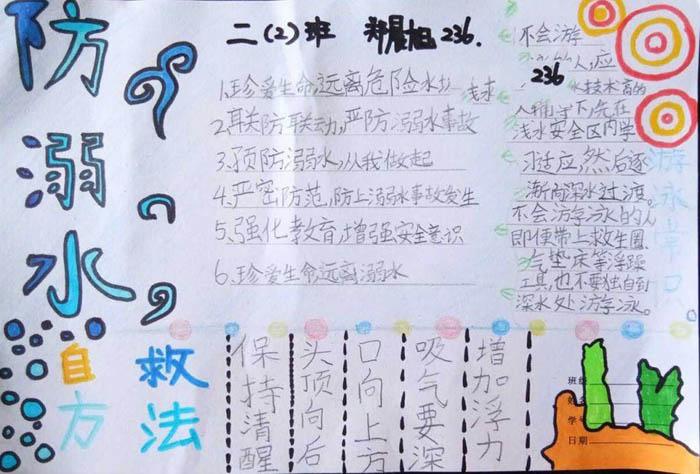 防溺水
二（2）班 郑晨旭 236.
1、珍爱生命,远离危险水域
2、联防联动,严防溺水事故
3、预防溺水,从我做起
4、严密防范,防上溺水事故发生
5、强化教育,增强安全意识
6、珍爱生命远离溺水
不会游
人,应
236
技术高的
浅水安全区内学
习适应,然后逐
渐向深水过渡。
不会游泳的人
即便带上救生圈
气垫床等浮
工具,也不要独自到
深水处游泳。
游泳常识
自救
方法
保持清醒
头顶向后
口向上方
吸气要深
增加浮力
班级
姓名
学号
日期